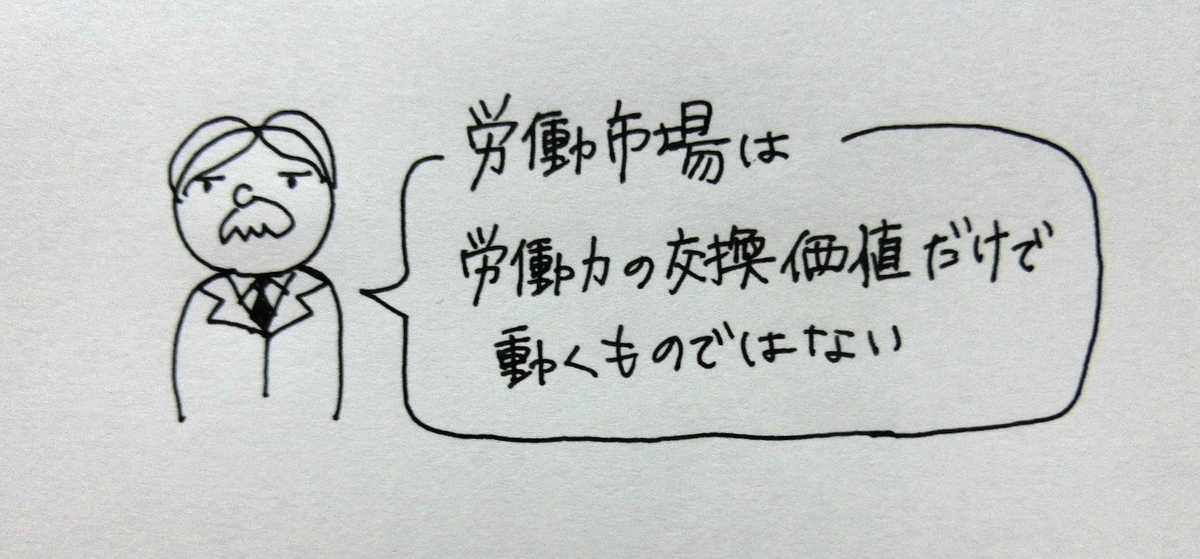 労働市場は
労働力の交換価値だけで
動くものではない